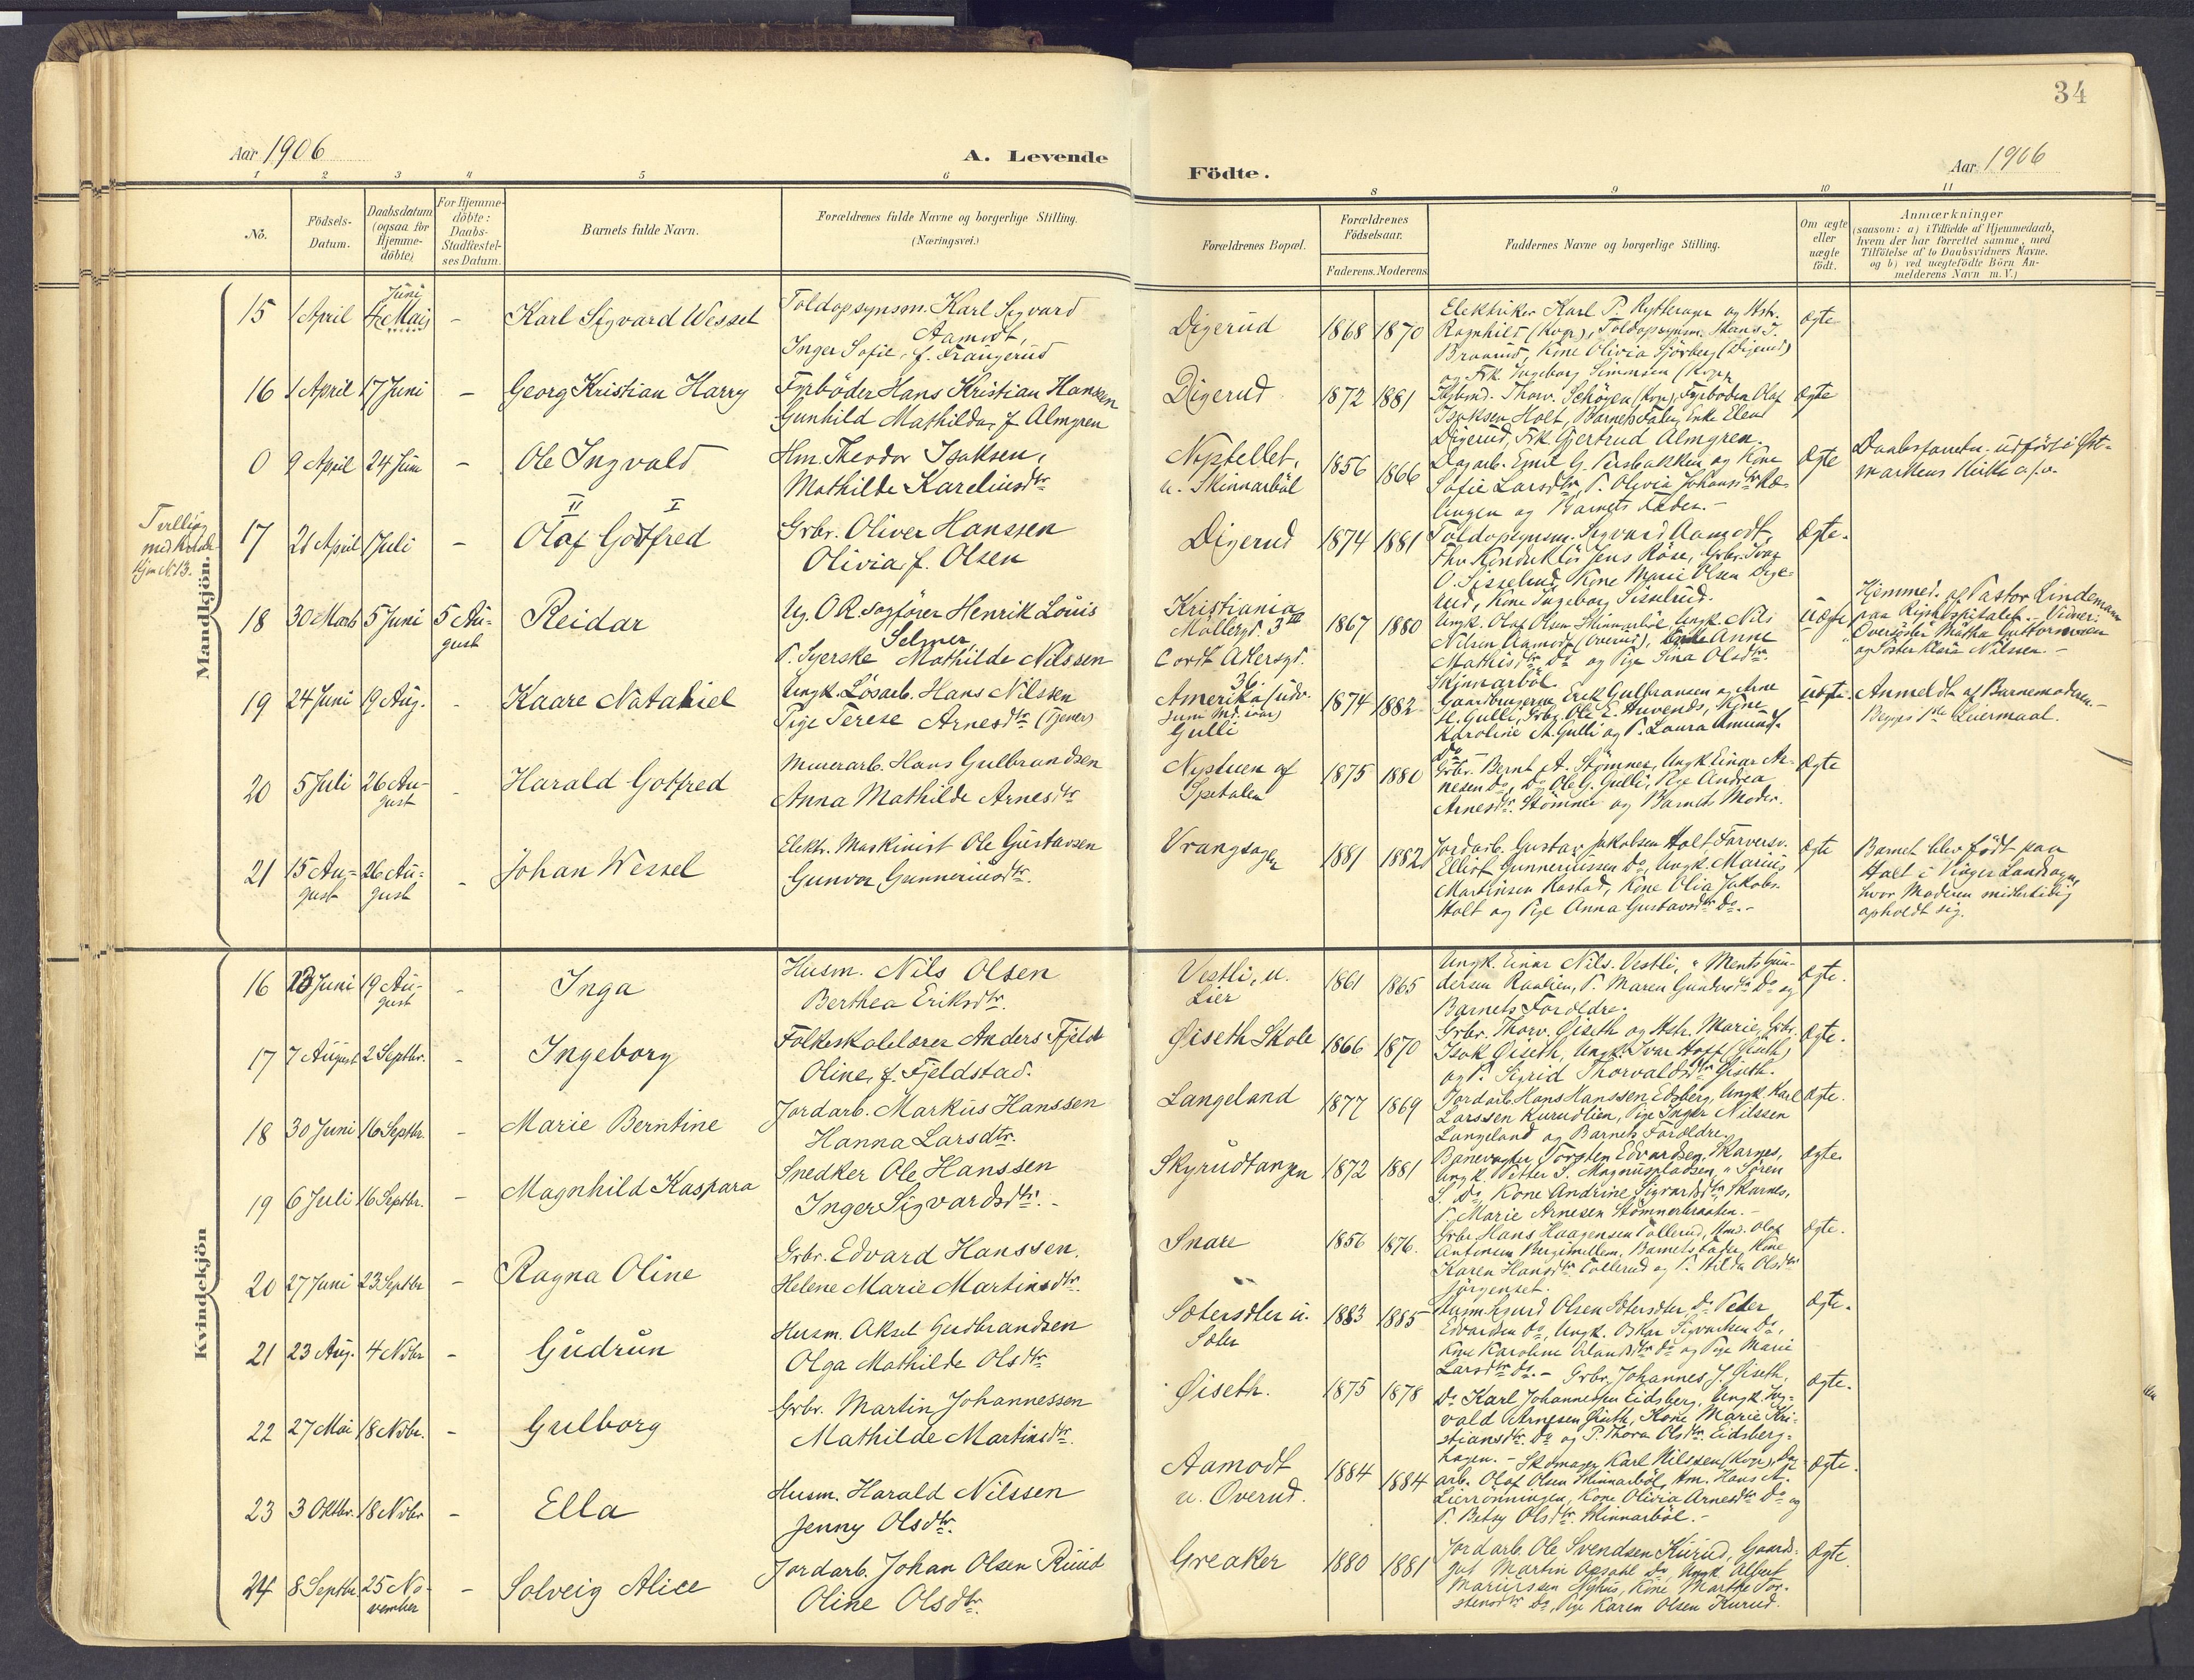 34
Aar 1906
A. Levende
Födte.
Aar 1906
1 2 3 4 5 6 8 9 10 11
No.
Födsels-Datum.
Daabsdatum (ogsaa for Hjemme-döbte)
For Hjemme-döbte: Daabs-Stadfæstel-ses Datum.
Barnets fulde Navn.
Forældrenes fulde Navne og borgerlige Stilling.
(Næringsvei.)
Forældrenes Bopæl.
Forældrenes Födselsaar.
Faderens. Moderens
Faddernes Navne og borgerlige Stilling.
Om ægte eller uægte födt.
Anmærkninger
(saasom: a) i Tilfælde af Hjemmedaab,
hvem der har forrettet samme, med
Tilföielse af to Daabsvidners Navne.
og b) ved uægtefödte Börn An-
melderens Navn m. V.)
Mandkjön.
15 1 April Juni 4 Mai - Karl Sigvard Wessel
Toldopsynsm. Karl Sigvard
Aamodt,
Inger Sofie, f. Frangerud
Digerud 1868 1870
Elektriker Karl P. Rytterager og Hstr.
Ragnhild (Kvgr), Toldopsynsm. Hans J.
Braarud, Kone Olivia Sjörberg (Digerud)
og Frk. Ingeborg Simonsen (Kvgr)
ægte
16 1 April 17 Juni - Georg Kristian Harry
Fyrböder Hans Kristian Hanssen
Gunhild Mathilda, f Almgren
Digerud 1872 1881
Thorv. Schöyen (Kvgr), Fyrböder Olaf
Isaksen Holt, Barnets Fader, Enke Elene
Digerud, Frk. Gjertrud Almgren.
ægte
0 9 April 24 Juni - Ole Ingvald
Hm. Theodor Isaksen,
Mathilde Kareliusdtr
Nystellet,
u. Skinnarböl
1856 1866
Dagarb. Emil G. Persbakken og Kone
Sofie Larsdtr, P. Olivia Johansdtr
og Barnets Fader. -
ægte
Daabsforretn. udfört i Öst-
markens Kirke
Tvilling
med
17 21 April 1 Juli - II I
Olaf Godtfred
Grbr. Oliver Hanssen
Olivia f. Olsen
Digerud 1874 1881
Toldopsynsm. Sigvard Aamodt,
Fhv. Konduktör Jens Röise, Grbr. Ivar
O. Sisselrud, Kone Marie Olsen Dige-
rud, Kone Ingeborg Sisselrud.
ægte.
18 30 Marts 5 Juni 5 Au-
gust
Reidar
Ug. O.R. sagförer Henrik Louis
Selmer,
P. Syerske Mathilde Nilssen
Kristiania
Möllergt. 3 III
Cordt Adlersgt.
36.
1867 1880
Ungk. Olaf Olsen Skinnarböl, Ungk. Nils
Nilsen Aamodt (Overud), Enke Anne
Mathisdtr Do og Pige Sina Olsdtr.
Skinnarböl.
uægte
Hjemmed. af Pastor Lindemann
paa Rigshospitalet. Vidner:
Oversöster Mätha Guttormsen
og Söster Klara Nilssen. -
19 24 Juni 19 Aug. - Kaare Natahiel
Ungk. Lösarb. Hans Nilssen
Pige Terese Arnesdtr (tjener)
Amerika (udv.
Juni Md. iaar)
Gulli
1874 1882
Gaardbrugerne Erik Gulbransen og Arne
H. Gulli, Grbr. Ole E. Huvends, Kone
Karoline A. Gulli og P. Laura Amunds.
Do -
uægte.
Anmeldt af Barnemoderen. -
Begges 1ste Leiermaal.
20 5 Juli 26 Au-
gust
- Harald Gotfred
Murerarb. Hans Gulbrandsen
Anna Mathilde Arnesdtr
Nystuen af
Spetalen
1875 1880
Grbr. Bernt A. Stömner, Ungk Einar Ar-
nesen Do, Do Ole G. Gulli, Pige Andrea
Arnesdtr. Stömner og Barnets Moder.
ægte
21 15 Au-
gust
26 Au-
gust
- Johan Wessel
Elektr. Maskinist Ole Gustavsen
Gunvor Gunneriusdtr.
Vrangsager
1881 1882
Jordarb. Gustav Jakobsen Holt, Farversv.
Ellif Gunneriussen Do, Ungk. Marius
Martinsen Rastad, Kone Olia Jakobs.
Holt og Pige Anna Gustavsdtr Do. -
ægte
Barnet blev födt paa
Holt i Vinger Landsogn,
hvor Moderen midlertidig
opholdt sig.
Kvindekjön
16 13 Juni 19 Au-
gust
- Inga
Husm. Nils Olsen
Berthea Eriksdtr.
Vestli, u.
Lier
1861 1865
Ungk. Einar Nils. Vestli, " Ments Gun-
dersen Raalien, P. Maren Gundersdtr Do og
Barnets Forældre.
ægte.
17 7 August 2 Septbr. - Ingeborg
Folkeskolelærer Anders Fjeldt
Oline, f. Fjeldstad.
Øiseth Skole 1866 1870
Grbr. Thorv. Øiseth og Hstr. Marie, Grbr.
Isak Øiseth, Ungk. Ivar Hoff (Øiseth)
og P. Sigrid Thorvaldsdtr Øiseth.
ægte.
18 30 Juni 16 Septbr. - Marie Berntine
Jordarb. Markus Hanssen
Hanna Larsdtr.
Langeland 1877 1869
Jordarb Hans Hanssen Edsberg, Ungk. Karl
Larssen Kurudlien, Pige Inger Nilssen
Langeland og Barnets Forældre.
ægte.
19 6 Juli 16 Septbr. - Magnhild Kaspara
Snedker Ole Hanssen
Inger Sigvardsdtr. -
Skyrudtangen 1872 1881
Banevogter Torsten Edvardsen, Skarnes,
Ungk. Petter S. Magnuspladsen, " Sören
S. Do, Kone Andrine Sigvardsdtr, Skarnes,
P. Marie Arnesen Stömnerbraaten. -
ægte.
20 27 Juni 23 Septbr - Ragna Oline
Grbr. Edvard Hanssen.
Helene Marie Martinsdtr.
Snare 1856 1876.
Grbr Hans Haagensen Tollerud, Olaf
Antonsen Bergsmellem, Barnets Fader, Kone
Karen Hansdtr Tollerud og P. Hilda Olsdtr
Jörgenset.
ægte.
21 23 Aug. 4 Nvbr - Gudrun
Husm. Aksel Gudbrandsen
Olga Mathilde Olsdtr
Sætersdler u.
Sæter
1883 1885
Husm. Olsen Sætersdler, Do Peder
Edvardsen Do, Ungk. Oskar Sigvartsen Do,
Kone Karoline Erlandsdtr Do og Pige Marie
Larsdtr Do. -
ægte.
22 27 Mai 18 Nvbr. - Gulborg
Grbr. Martin Johannessen
Mathilde Martinsdtr.
Øiseth. 1875 1878
Grbr. Johannes J. Øiseth,
Do Karl Johannessen Eidsberg, Ungk. Ing-
vald Arnesen Øiseth, Kone Marie Kri-
stiansdtr. Do og P. Thora Olsdtr. Eidsberg-
hagen. -
ægte.
23 3 Oktbr. 18 Nvbr - Ella
Husm. Harald Nilssen
Jenny Olsdtr.
Aamodt
u. Overud.
1884 1884
Skomager Karl Nilssen (Kvgr), Dag-
arb. Olaf Olsen Skinnarböl, Hm. Hans A.
Lierrönningen, Kone Olivia Arnesdtr Do og
P. Betsy Olsdtr. Skinnarböl. -
ægte.
24 8 Septbr. 25 No-
vember
- Solveig Alice
Jordarb. Johan Olsen Ruud
Oline Olsdtr.
Greaker 1880 1881
Jordarb. Ole Svendsen Kurud, Gaard-
gut Martin Opsahl Do, Ungk Albert
Mariussen Nyhus, Kone Marthe Tor-
stensdtr Do, Pige Karen Olsen Kurud.
ægte.